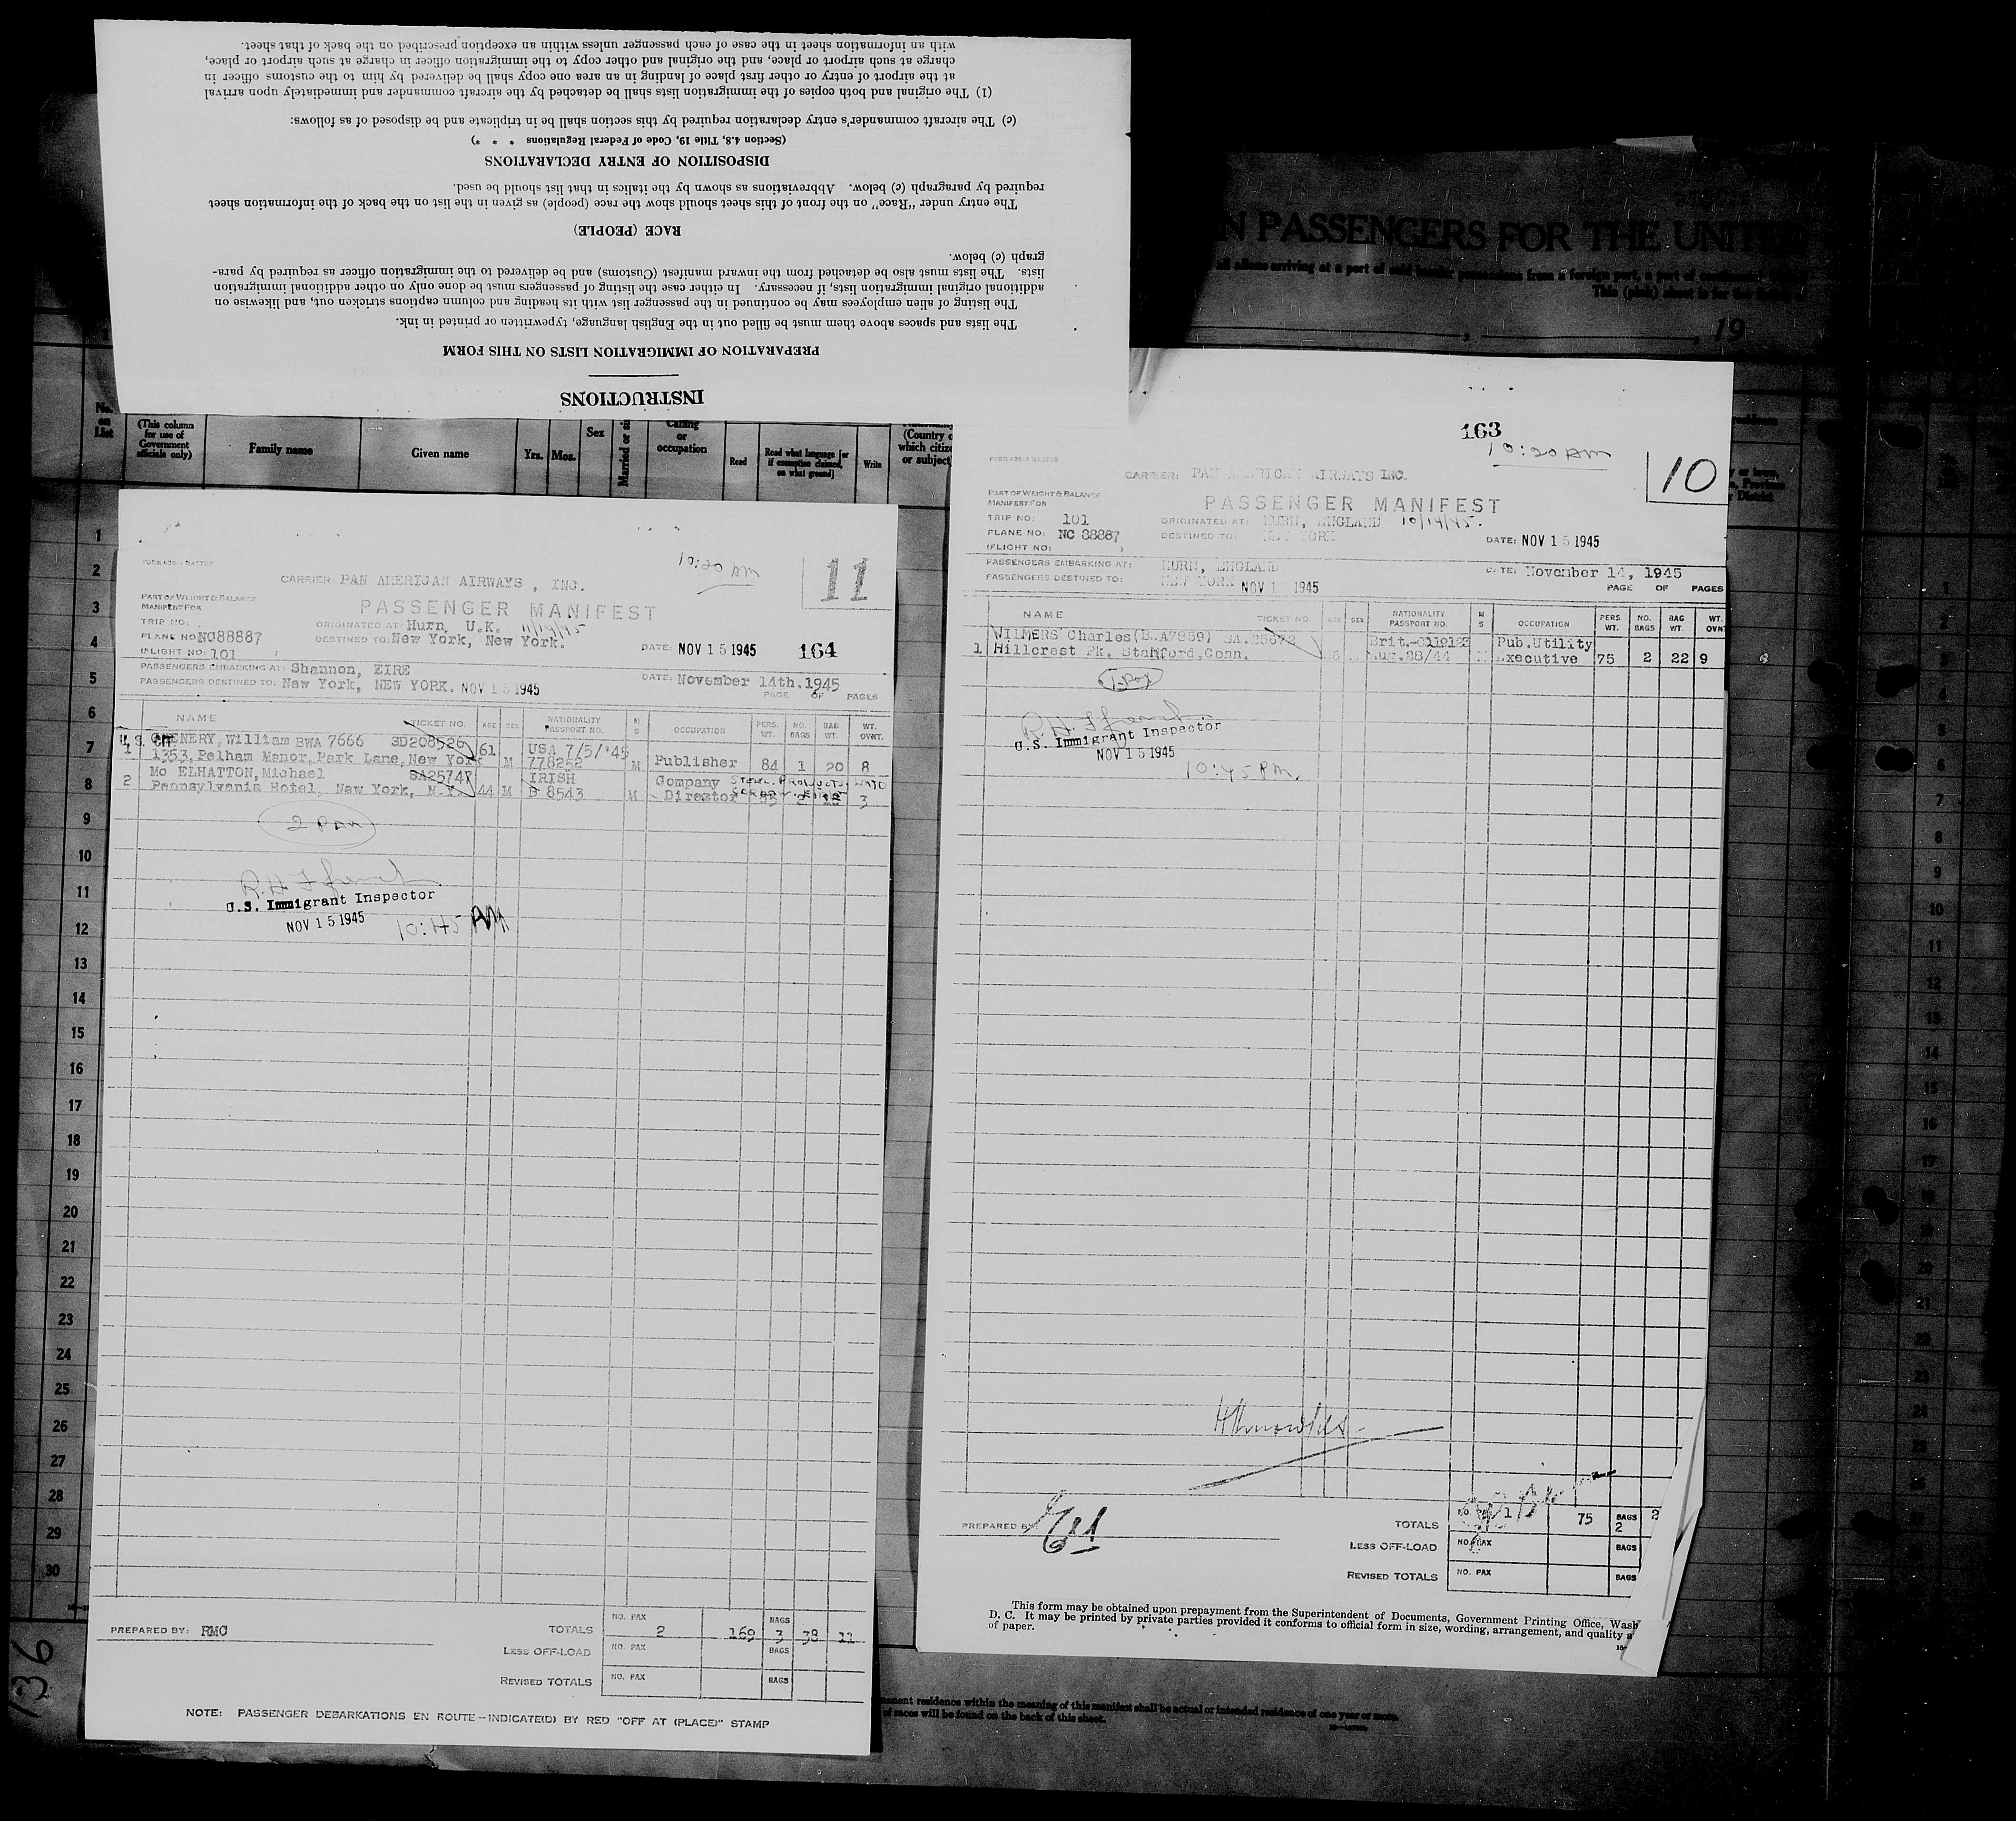 INSTRUCTIONS
PREPARATION OF IMMIGRATION LISTS ON THIS FORM
The lists and spaces above them must be filled out in the English language, typewritten or printed in ink.
The listing of alien employees may be continued in the passenger list with its heading and column captions stricken out, and likewise on
additional original immigration lists, if necessary. In either case the listing of passengers must be done only on other additional immigration
lists. The lists must also be detached from the inward manifest (Customs) and be delivered to the immigration officer as required by para-
graph (c) below.
RACE (PEOPLE)
The entry under "Race" on the front of this sheet should show the race (people) as given in the list on the back of the information sheet
required by paragraph (c) below. Abbreviations as shown by the italics in that list should be used.
DISPOSITION OF ENTRY DECLARATIONS
(Section 4.8, Title 19, Code of Federal Regulations * * *)
(c) The aircraft commander's entry declaration required by this section shall be in triplicate and be disposed of as follows:
(1) The original and both copies of the immigration lists shall be detached by the aircraft commander and immediately upon arrival
at the airport of entry or other first place of landing in an area one copy shall be delivered by him to the customs officer in
charge at such airport or place, and the original and other copy to the immigration officer in charge at such airport or place,
with an information sheet in the case of each passenger unless within an exception prescribed on the back of that sheet.
N PASSENGERS FOR THE UNITE
all aliens arriving at a port of
from a foreign port, a port of
This (pink) sheet is for the
, 19
No. on List
(This column for use of Government officials only)
Family name
Given name
Yrs. Mos.
Sex
Married or si
Calling or occupation
Read
Read what language [or if exemption claimed, on what ground]
Write
(Country o which citiz or subject
10:20 AM
11
CARRIER: PAN AMERICAN AIRWAYS, INC.
PART OF WEIGHT & BALANCE
MANIFEST FOR
PASSENGER MANIFEST
TRIP NO:
ORIGINATED AT: Hurn, U.K. 11/14/45
PLANE NO: NC88887
DESTINED TO: New York, New York.
DATE: NOV 15 1945 164
(FLIGHT NO: 101 )
PASSENGERS EMBARKING AT: Shannon, EIRE
DATE: November 14th. 1945
PASSENGERS DESTINED TO: New York, NEW YORK. NOV 15 1945
PAGE OF PAGES
NAME TICKET NO. AGE SEX NATIONALITY PASSPORT NO. M S OCCUPATION PERS. WT. NO. BAGS BAG WT. WT. OVWT.
U.S. CIT.
1 CHENERY, William BWA 7666 SD208526 61 USA 7/5/'45
1353, Pelham Manor, Park Lane, New York M 778252 M Publisher 84 1 20 8
Mc ELHATTON, Michael SA25747 IRISH Company
2 Pennsylvania Hotel, New York, N.Y. 44 M B 8543 M Director 3
2 PAX
U.S. Immigrant Inspector
NOV 15 1945 10:45 AM
PREPARED BY: RMC
TOTALS NO. PAX 2 169 BAGS 3 38 11
LESS OFF-LOAD NO. PAX BAGS
REVISED TOTALS NO. PAX BAGS
NOTE: PASSENGER DEBARKATIONS EN ROUTE—INDICATE(D) BY RED "OFF AT (PLACE)" STAMP
163
10:20 AM
10
CARRIER: PAN AMERICAN AIRWAYS INC.
PART OF WEIGHT & BALANCE
MANIFEST FOR
PASSENGER MANIFEST
TRIP NO: 101
ORIGINATED AT: HURN, ENGLAND 10/14/45.
PLANE NO: NC 88887
DESTINED TO: NEW YORK
DATE: NOV 15 1945
(FLIGHT NO: )
PASSENGERS EMBARKING AT: HURN, ENGLAND
DATE: November 14, 1945
PASSENGERS DESTINED TO: NEW YORK NOV 1 1945
PAGE OF PAGES
NAME TICKET NO. AGE SEX NATIONALITY PASSPORT NO. M S OCCUPATION PERS. WT. NO. BAGS BAG WT. WT. OVWT
WILMERS Charles (BWA7859) Brit. Pub.Utility
1 Hillcrest Pk, Stamford, Conn. Aug.28/44 M Executive 75 2 22 9
1 PAX
U.S. Immigrant Inspector
NOV 15 1945
10:45 PM
PREPARED BY
TOTALS NO. 1 75 BAGS 2 2
LESS OFF-LOAD NO. PAX BAGS
REVISED TOTALS NO. PAX BAGS
This form may be obtained upon prepayment from the Superintendent of Documents, Government Printing Office, Wash
D. C. It may be printed by private parties provided it conforms to official form in size, wording, arrangement, and quality
of paper.
manent residence within the meaning of this manifest shall be actual or intended residence of one year or more.
of races will be found on the back of this sheet.
136